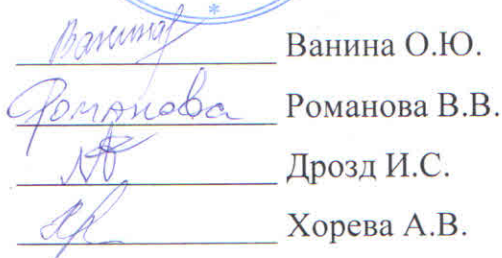 Ванина Ванина О.Ю.
Романова Романова В.В.
Дрозд И.С.
Хорева А.В.